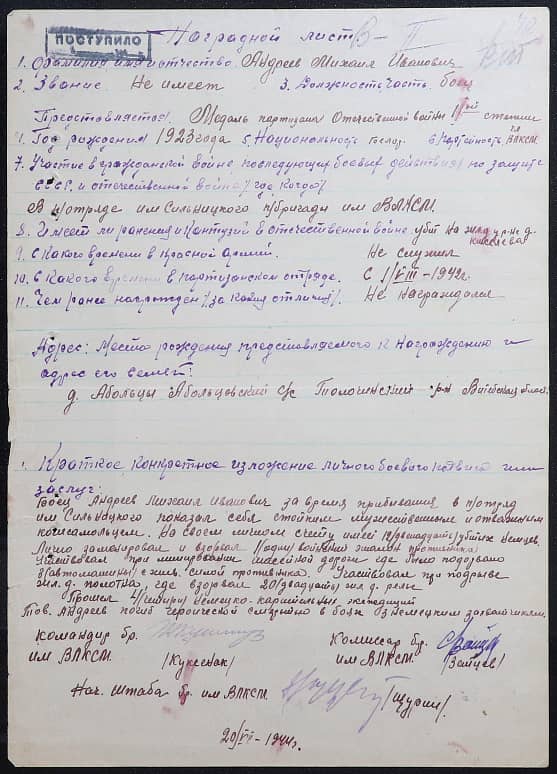 ПОСТУПИЛО
Наградной лист В-II
1. Фамилия имя отчество. Андреев Михаил Иванович
2. Звание. Не имеет 3. Должность, часть. боец
Представляется. Медаль партизана Отечественной войны II ой степени
4. Год рождения 1923 года 5. Национальность 6. Партийность ВЛКСМ.
7. Участие в гражданской войне, последующих боевых действиях по защите
СССР и отечественной войне /где, когда/
В п/отряде им Сильницкого п/бригады им ВЛКСМ.
8. Имеет ли ранения и контузии в отечественной войне. убит на ж.д у р-не д.
9. С какого времени в Красной Армии. Не служил
10. С какого времени в партизанском отряде. С 1/VIII-1942г.
11. Чем ранее награжден /за какия отличия/. Не награждался
Адрес: Место рождения представляемого к награждению и
адрес его семьи:
д. Абольцы Абольцовский с/с Толочинский р-н Витебская област.
Краткое, конкретное изложение личного боевого подвига или
заслуг:
Боец Андреев Михаил Иванович за время прибивания в п/отряд
им Сильницкого показал себя стойким мужественным и отважным
комсамольцем. На своем личном счету имеет 12/двенадцать/ убитых немцев.
Лично заминировал и взорвал 1/один/ войнский эшалон противника.
Участвовал при минировании шоссейной дороги где было подорвано
3 автомашины с жив. силой противника. Участвовал при подрыве
жел. д. полотна, где взорвал 20/двадцать/ жел д. рельс
Прошел 4/четыри/ немецко-карательных экспедиций
Тов. Андреев погиб героической смертью в бою з немецким захватчиками.
Командир бр. Комиссар бр.
им ВЛКСМ. /Куксенок/ им ВЛКСМ. /Зайцев/
Нач. штаба бр. им ВЛКСМ. /Щурин/.
20/VII-1944г.